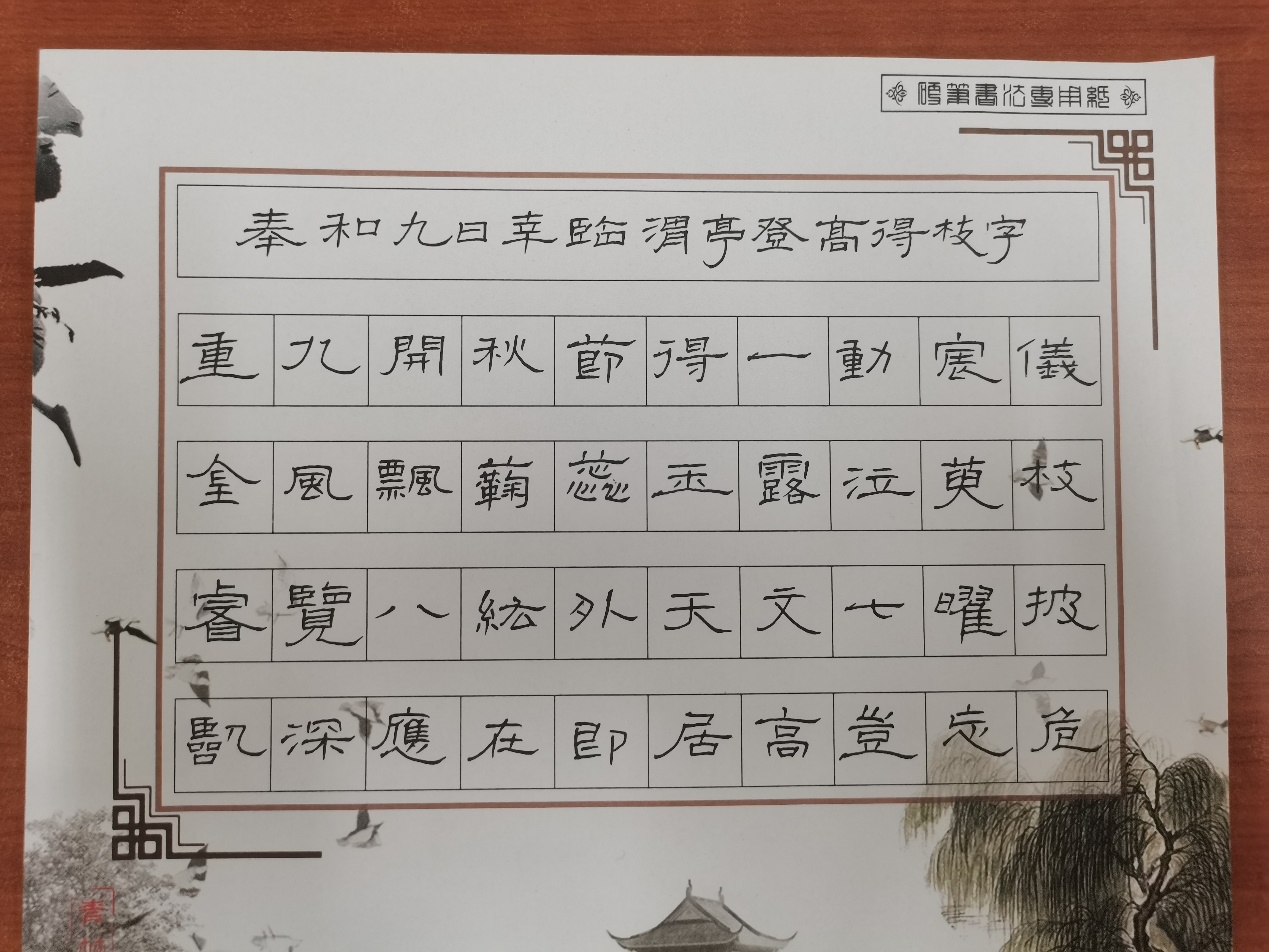 硬筆書法專用紙
奉和九日幸臨渭亭登高得枝字
重九開秋節得一動宸儀
金風飄菊蕊玉露泣萸枝
睿覽八紘外天文七曜披
臨深應在即居高豈忘危
青